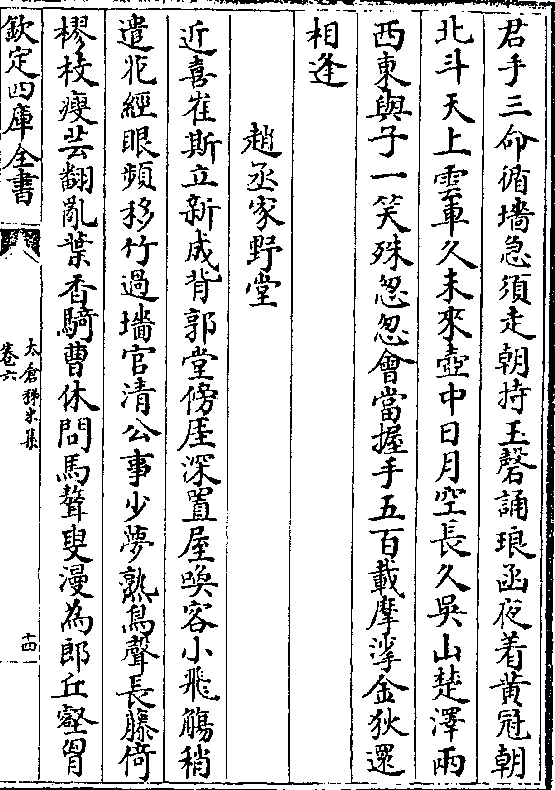 君乎三命循墻急須走朝持玉磬誦琅函夜着黄冠朝
北斗天上雲車久未來壺中日月空長久吳山楚澤兩
西東與子一笑殊怱怱會當握手五百載摩挲金狄還
相逢
趙丞家野堂
近喜崔斯立新成背郭堂傍厓深置屋喚客小飛觴稍
遣花經眼頻移竹過墻官清公事少夢熟鳥聲長藤倚
樛枝瘦芸翻亂葉香騎曹休問馬聱叟漫為郎丘壑胷
欽定四庫全書
太倉稊米集
卷六
十四